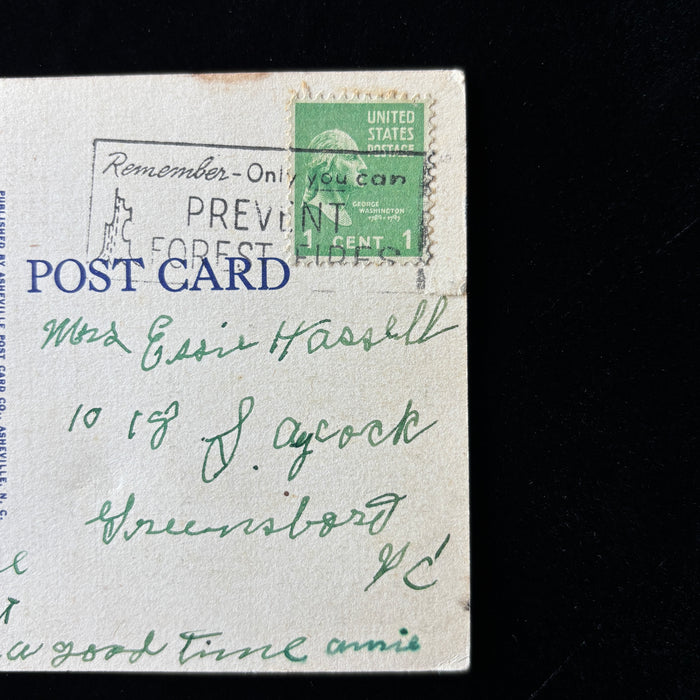 UNITED
STATES
POSTAGE
GEORGE
WASHINGTON
1789-1797
1 CENT 1
Remember - Only you can
PREVENT
FOREST FIRES
POST CARD
PUBLISHED BY ASHEVILLE POST CARD CO., ASHEVILLE, N. C.
Mrs Essie Hassell
1018 S. Aycock
Greensboro
NC
a good time annie